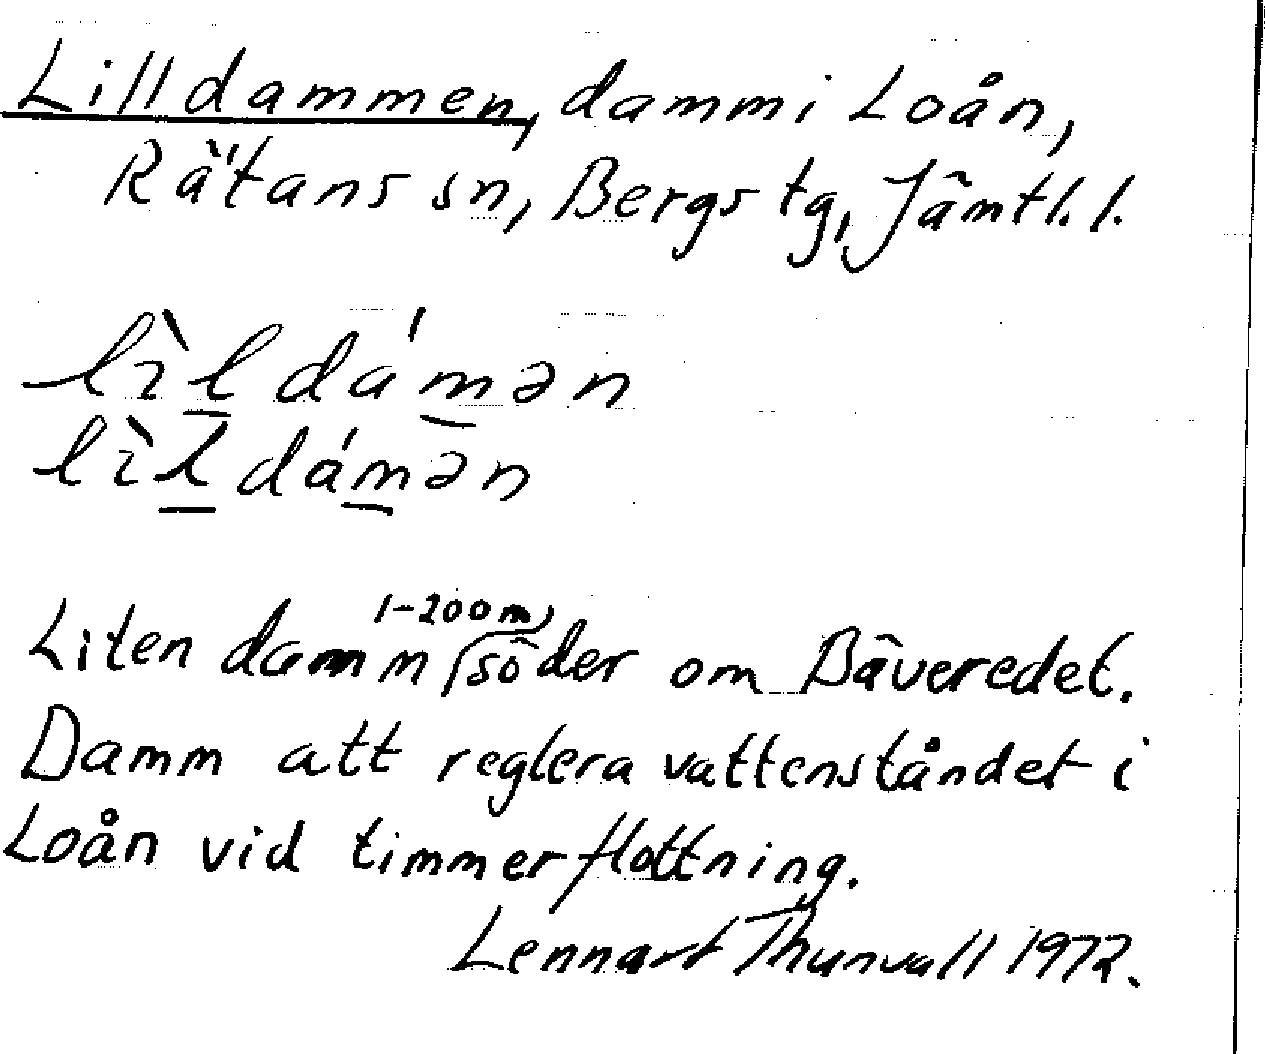 Lilldammen, damm i Loån,
Rätans sn, Bergs tg, Jämtl. l.
lìl̲dám̲ən
lìl̲dám̲ən
Liten damm 1-200 m söder om Bäveredet.
Damm att reglera vattenståndet i
Loån vid timmerflottning.
Lennart Thunvall 1972.